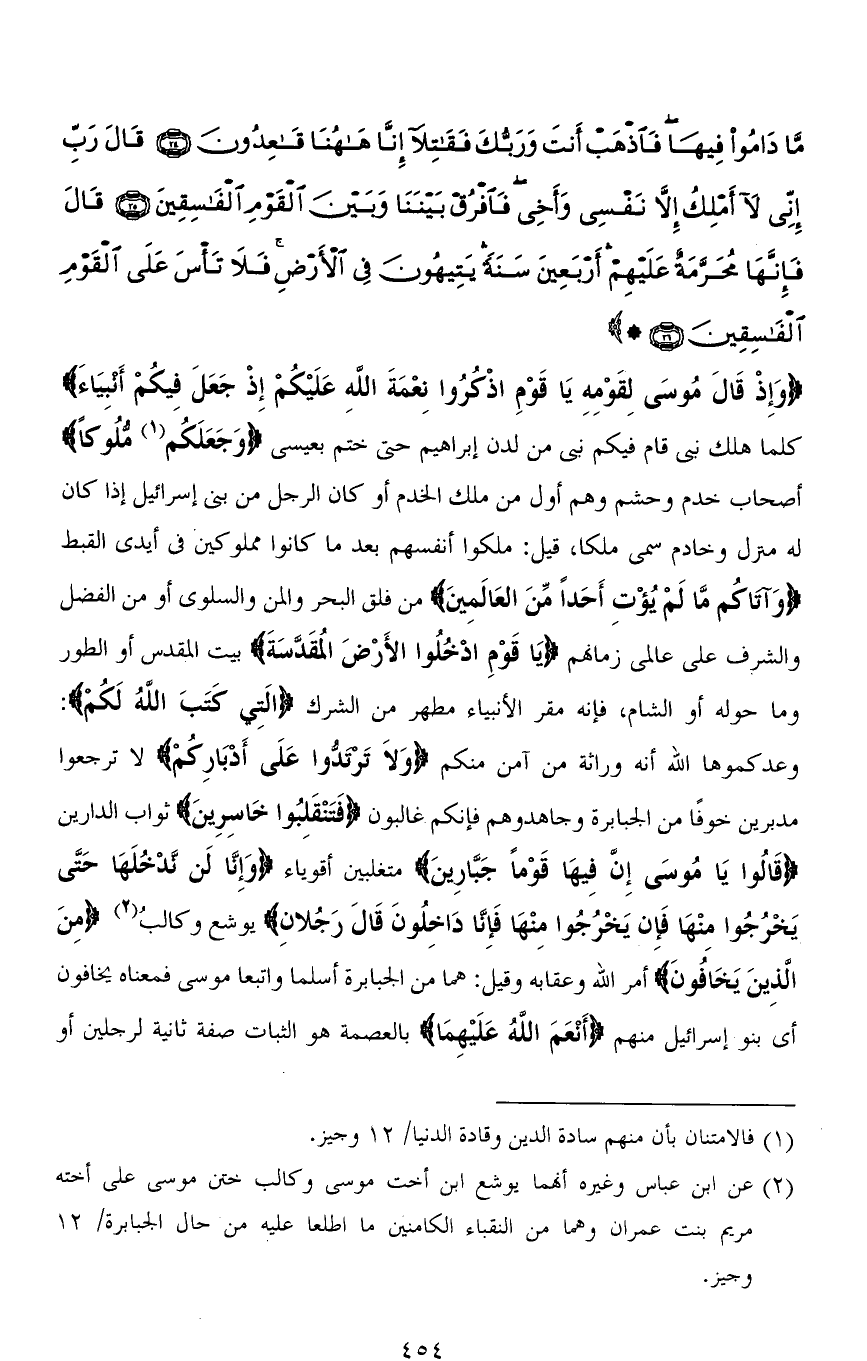 مَّا دَامُوا۟ فِيهَا ۖ فَٱذْهَبْ أَنتَ وَرَبُّكَ فَقَـٰتِلَآ إِنَّا هَـٰهُنَا قَـٰعِدُونَ ٢٤ قَالَ رَبِّ
إِنِّى لَآ أَمْلِكُ إِلَّا نَفْسِى وَأَخِى ۖ فَٱفْرُقْ بَيْنَنَا وَبَيْنَ ٱلْقَوْمِ ٱلْفَـٰسِقِينَ ٢٥ قَالَ
فَإِنَّهَا مُحَرَّمَةٌ عَلَيْهِمْ ۛ أَرْبَعِينَ سَنَةً ۛ يَتِيهُونَ فِى ٱلْأَرْضِ ۚ فَلَا تَأْسَ عَلَى ٱلْقَوْمِ
ٱلْفَـٰسِقِينَ ٢٦ * ﴾
﴿وَإِذْ قَالَ مُوسَى لِقَوْمِهِ يَا قَوْمِ اذْكُرُوا نِعْمَةَ اللَّهِ عَلَيْكُمْ إِذْ جَعَلَ فِيكُمْ أَنْبِيَاءَ﴾
كلما هلك نبى قام فيكم نبى من لدن إبراهيم حتى ختم بعيسى ﴿وَجَعَلَكُم(١) مُّلُوكاً﴾
أصحاب خدم وحشم وهم أول من ملك الخدم أو كان الرجل من بنى إسرائيل إذا كان
له منزل وخادم سمى ملكا، قيل: ملكوا أنفسهم بعد ما كانوا مملوكين فى أيدى القبط
﴿وَآتَاكُم مَّا لَمْ يُؤْتِ أَحَداً مِّنَ العَالَمِينَ﴾ من فلق البحر والمن والسلوى أو من الفضل
والشرف على عالمى زمانهم ﴿يَا قَوْمِ ادْخُلُوا الأَرْضَ المُقَدَّسَةَ﴾ بيت المقدس أو الطور
وما حوله أو الشام، فإنه مقر الأنبياء مطهر من الشرك ﴿الَتِي كَتَبَ اللَّهُ لَكُمْ﴾:
وعدكموها الله أنه وراثة من آمن منكم ﴿وَلاَ تَرْتَدُّوا عَلَى أَدْبَارِكُمْ﴾ لا ترجعوا
مدبرين خوفًا من الجبابرة وجاهدوهم فإنكم غالبون ﴿فَتَنْقَلِبُوا خَاسِرِينَ﴾ ثواب الدارين
﴿قَالُوا يَا مُوسَى إِنَّ فِيهَا قَوْماً جَبَّارِينَ﴾ متغلبين أقوياء ﴿وَإِنَّا لَن نَّدْخُلَهَا حَتَّى
يَخْرُجُوا مِنْهَا فَإِن يَخْرُجُوا مِنْهَا فَإِنَّا دَاخِلُونَ قَالَ رَجُلانِ﴾ يوشع وكالبُ(٢) ﴿مِنَ
الَّذِينَ يَخَافُونَ﴾ أمر الله وعقابه وقيل: هما من الجبابرة أسلما واتبعا موسى فمعناه يخافون
أى بنو إسرائيل منهم ﴿أَنْعَمَ اللَّهُ عَلَيْهِمَا﴾ بالعصمة هو الثبات صفة ثانية لرجلين أو
(١) فالامتنان بأن منهم سادة الدين وقادة الدنيا/ ١٢ وجيز.
(٢) عن ابن عباس وغيره أنهما يوشع ابن أخت موسى وكالب ختن موسى على أخته
مريم بنت عمران وهما من النقباء الكامنين ما اطلعا عليه من حال الجبابرة/ ١٢
وجيز.
٤٥٤